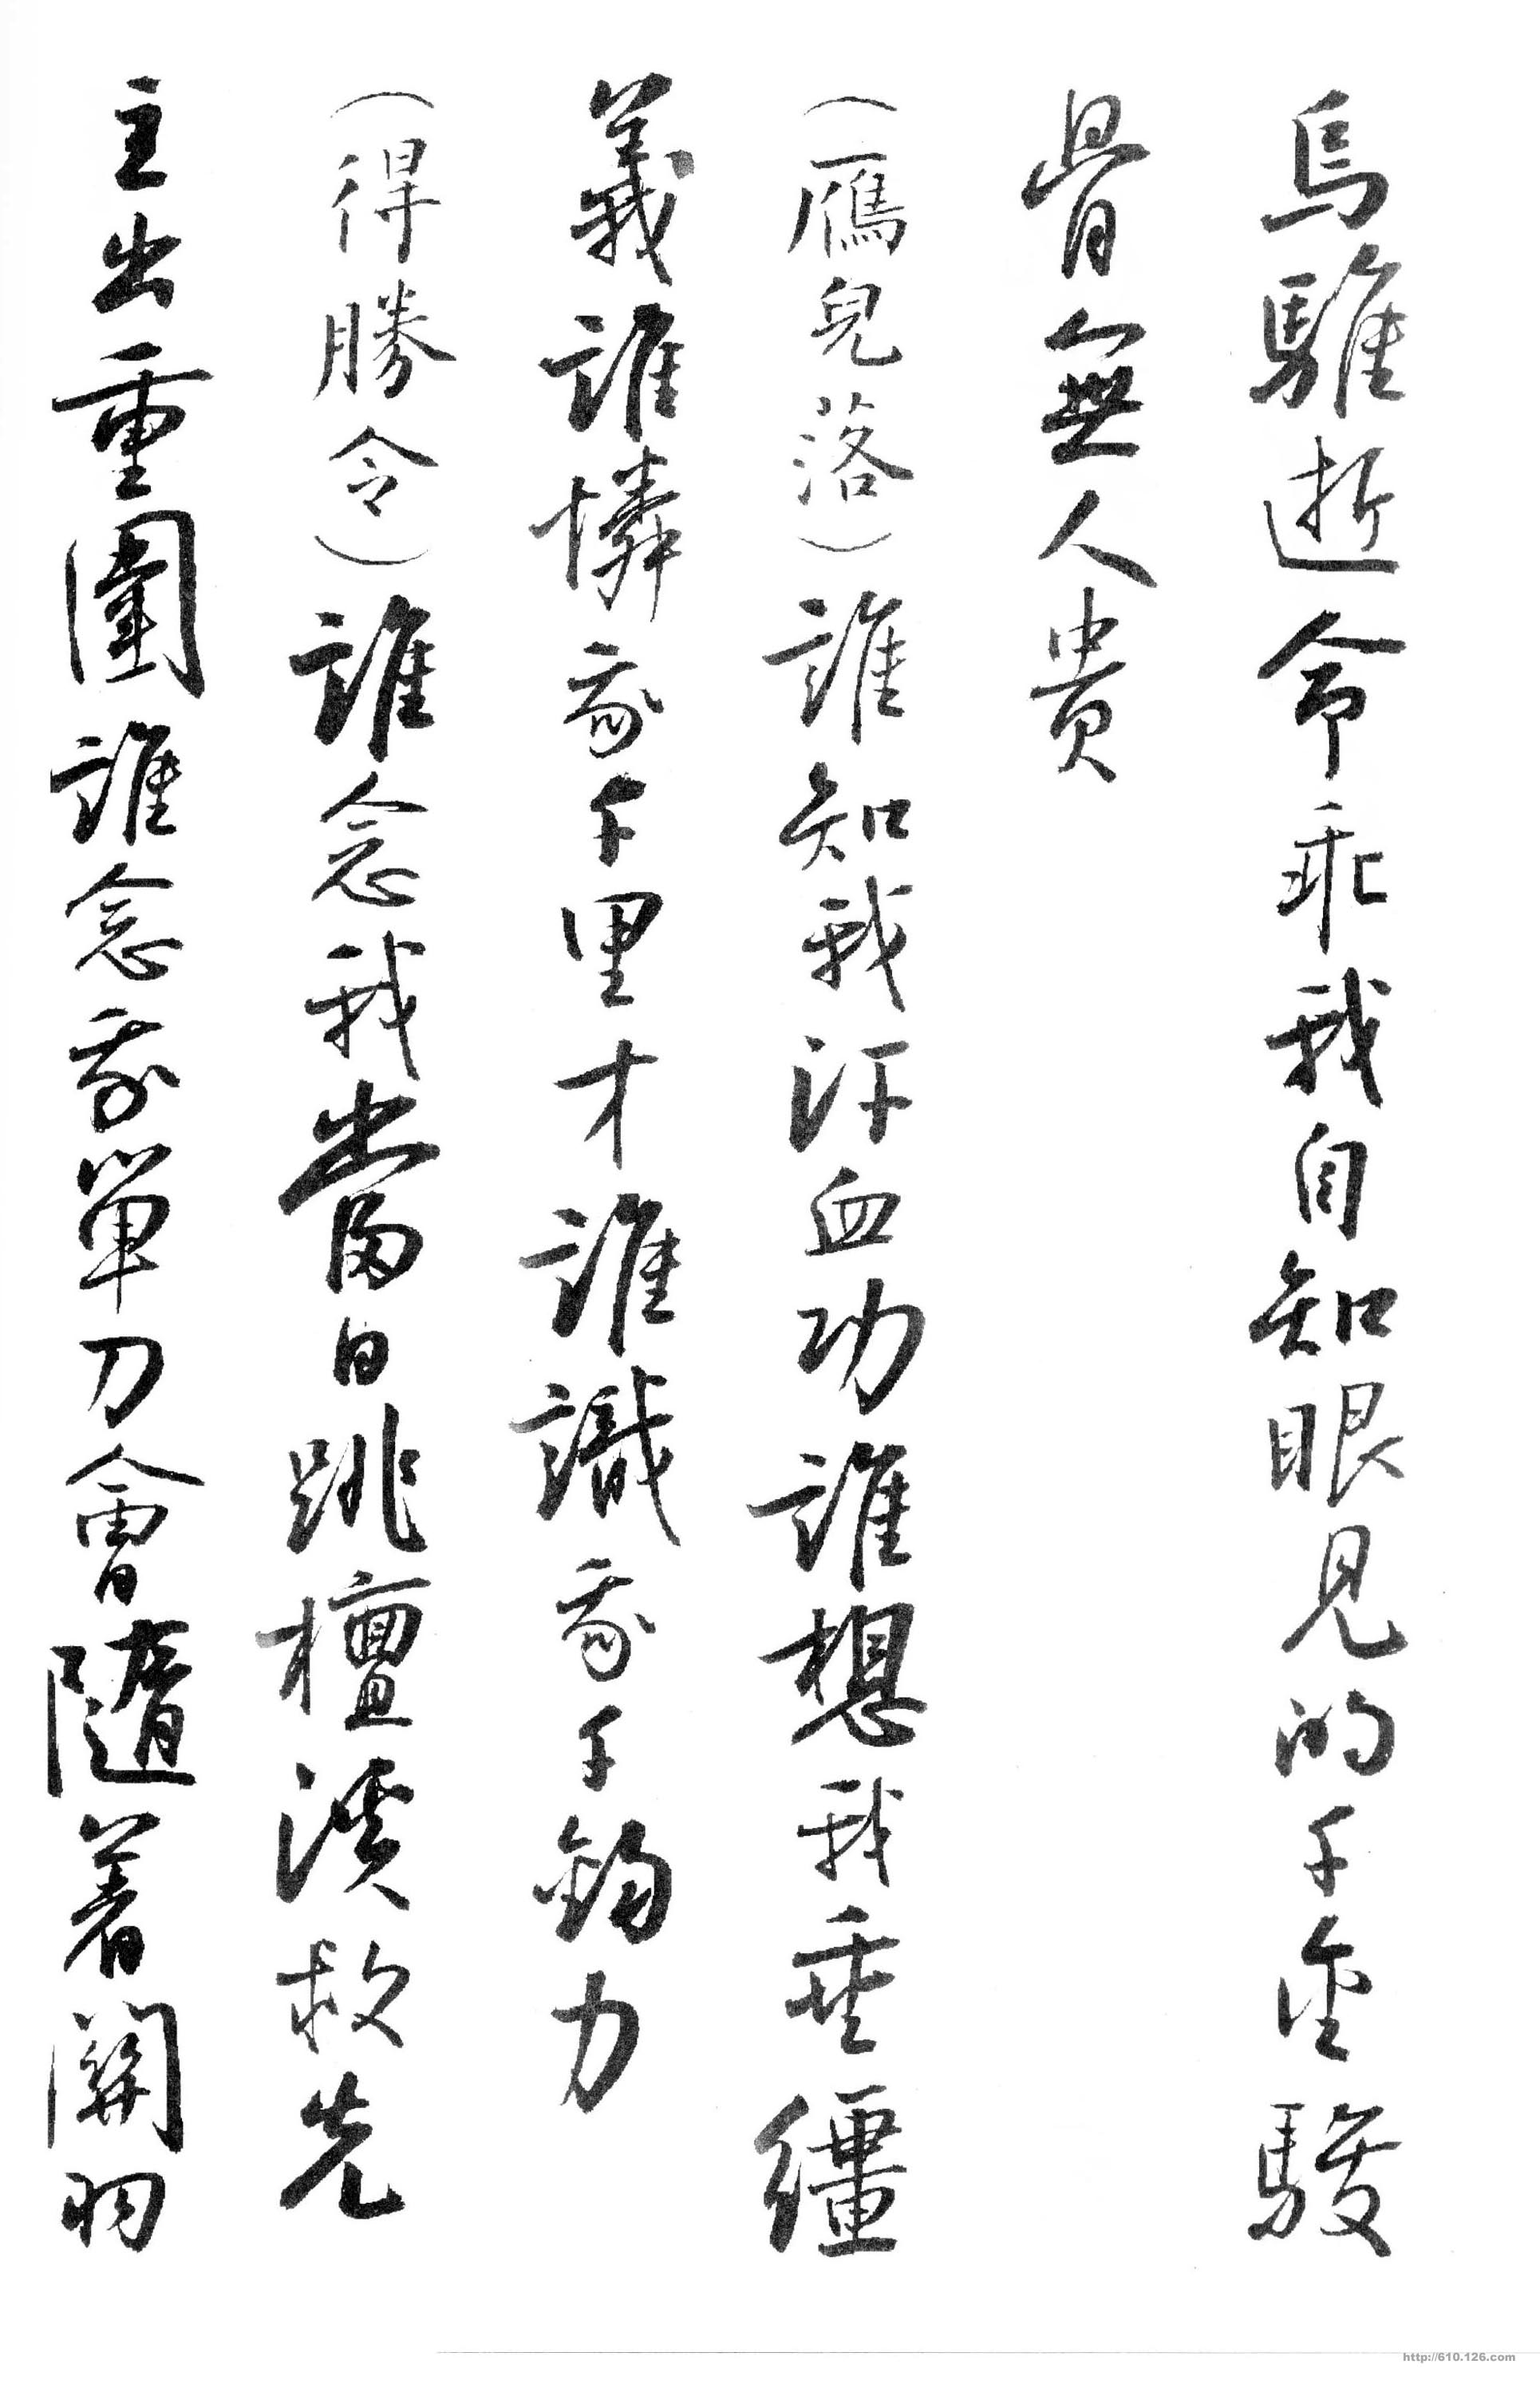 烏騅逝命乖我自知眼見的千金駿
骨無人貴
（鴈兒落）誰知我汗血功誰想我垂繮
義誰憐我千里才誰識我千鈞力
（得勝令）誰念我當日跳檀溪救先
主出重圍誰念我單刀會隨著關羽
http://610.126.com